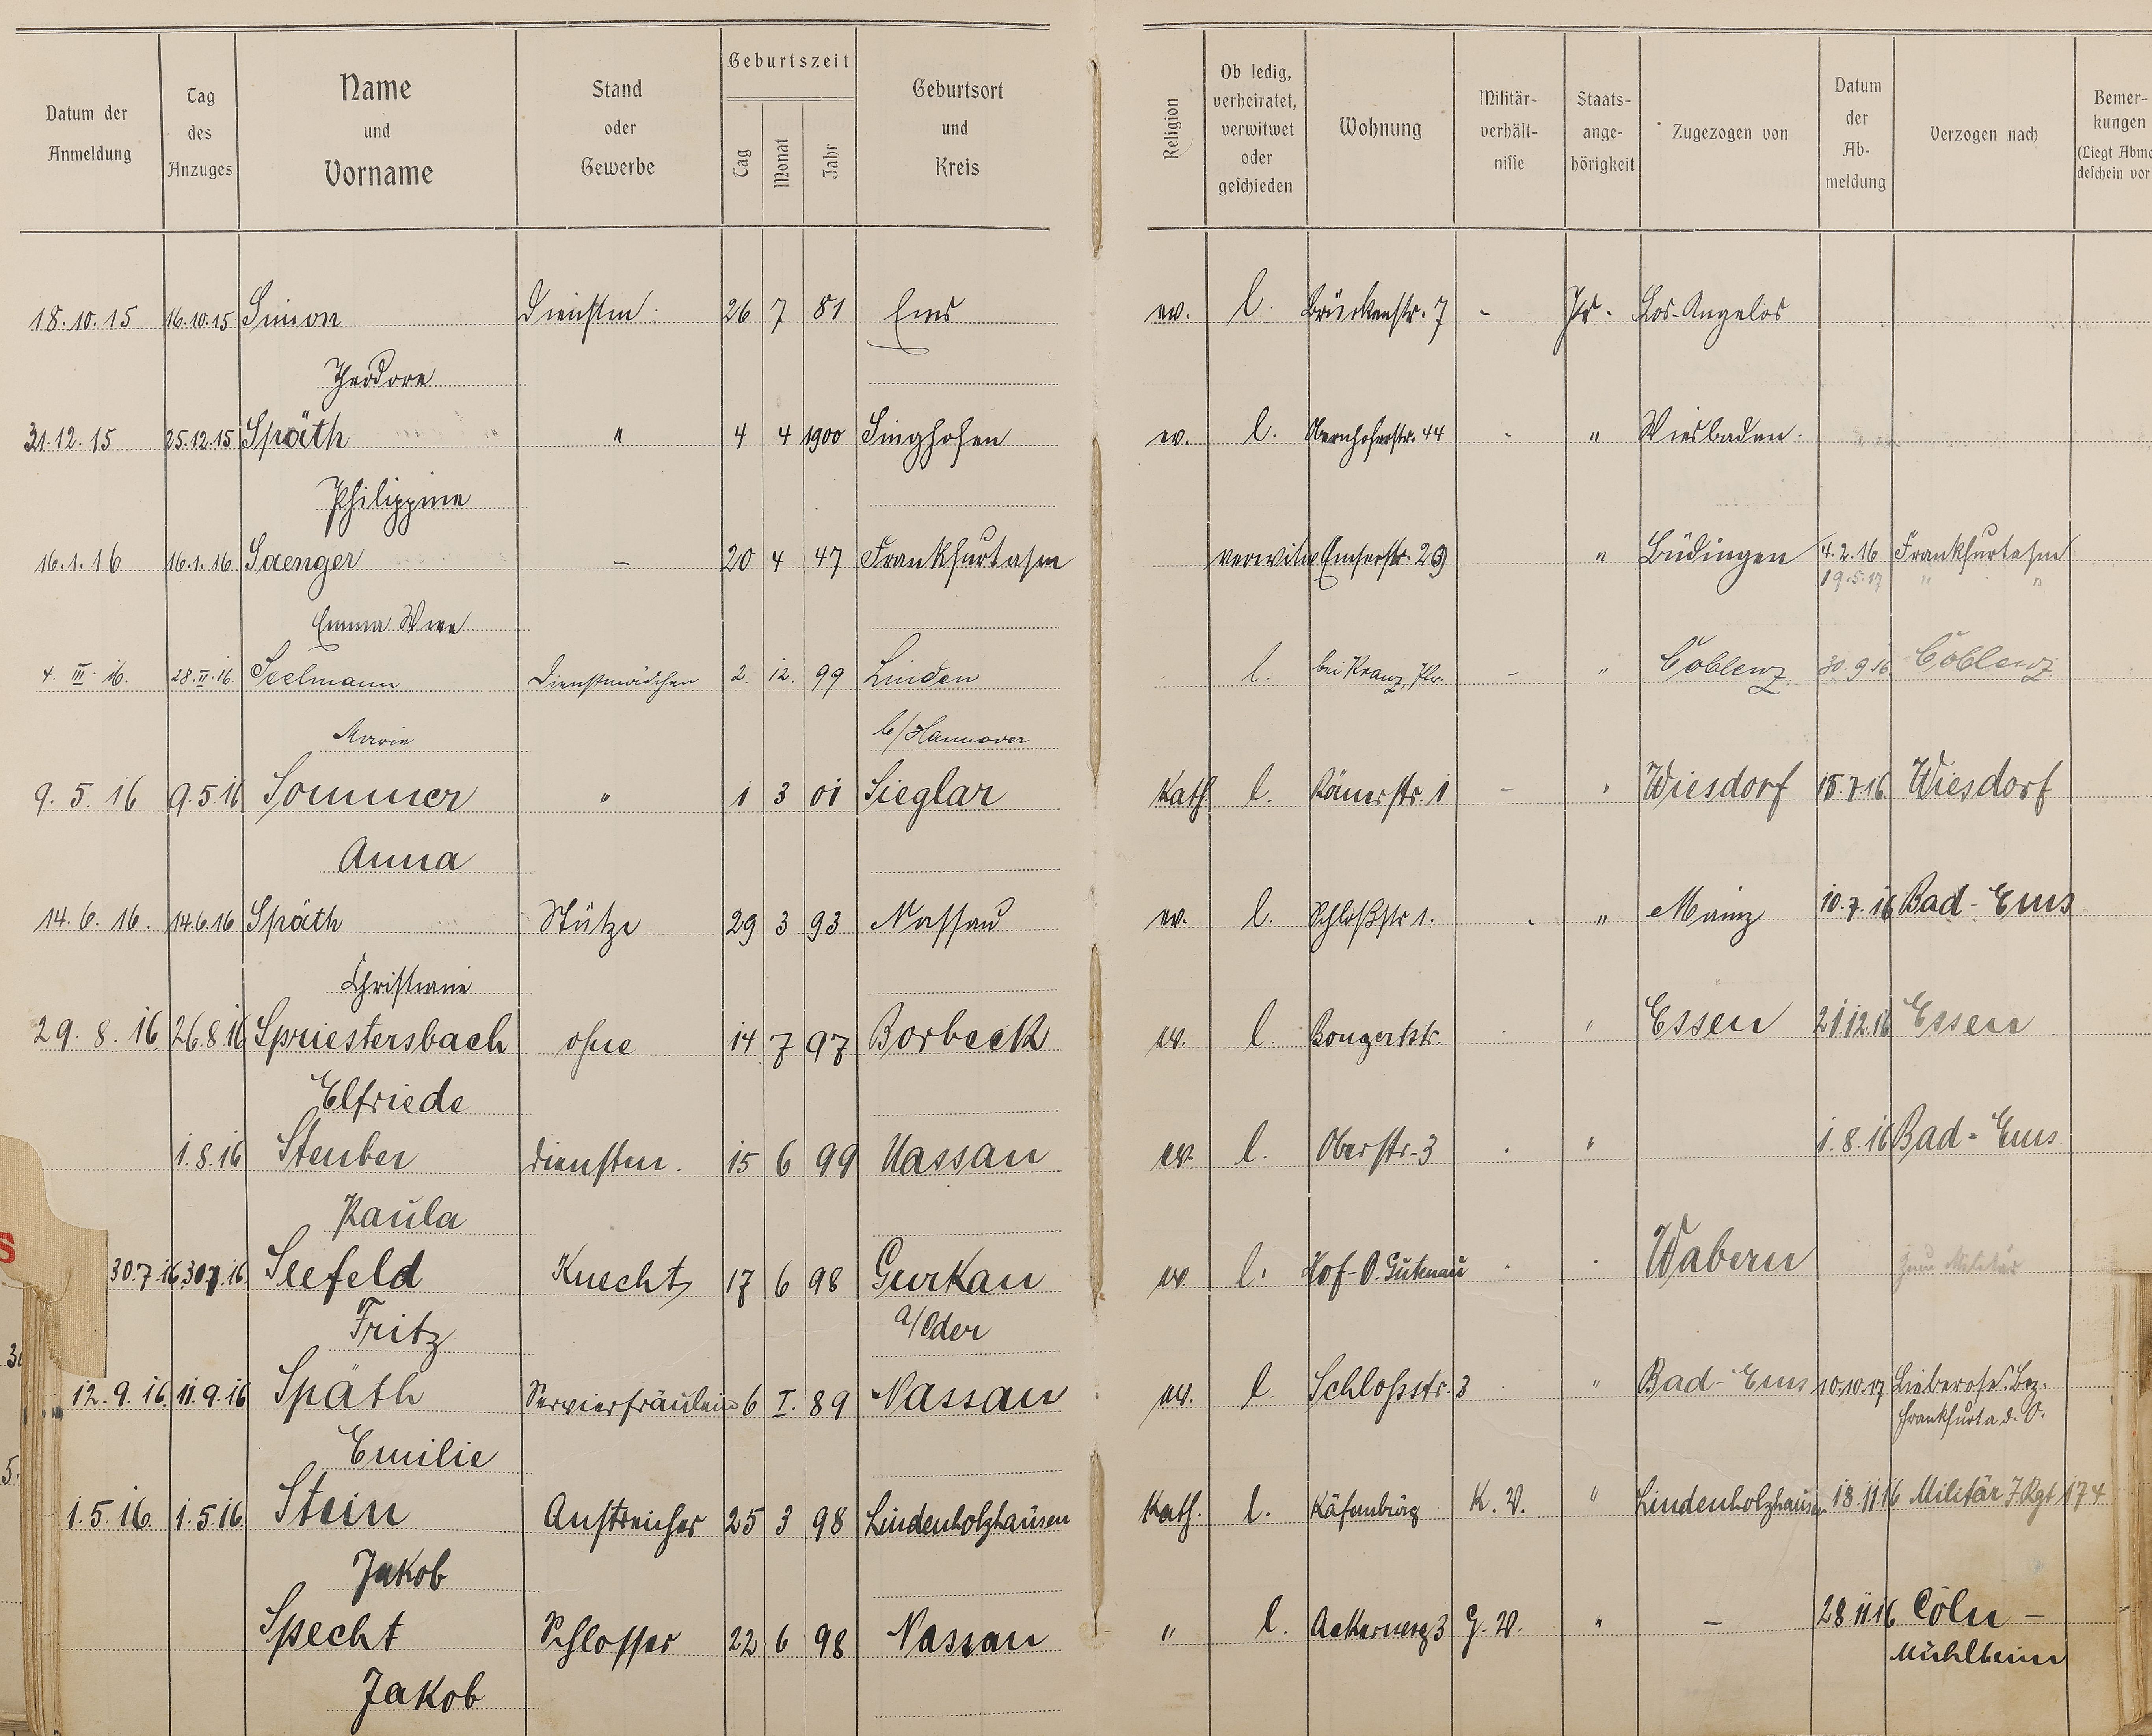 Datum der Anmeldung | Tag des Anzuges | Name und Vorname | Stand oder Gewerbe | Geburtszeit Tag Monat Jahr | Geburtsort und Kreis | Religion | Ob ledig, verheiratet, verwitwet oder geschieden | Wohnung | Militär-verhält-nisse | Staats-ange-hörigkeit | Zugezogen von | Datum der Ab-meldung | Verzogen nach | Bemer-kungen (Liegt Abme deschein vor
18.10.15 16.10.15 Simon Dienstm. 26 7 81 Ems ev. l. Brückenstr. 7 - Pr. Los-Angelos
Theodore
31.12.15 25.12.15 Späth " 4 4 1900 Singhofen ev. l. Obernhoferstr. 44 - " Wiesbaden.
Philippine
16.1.16 16.1.16 Saenger – 20 4 47 Frankfurt a/m verwitw Emserstr. 29 " Büdingen 4.2.16 Frankfurt a/m
19.5.17 " "
Emma Wwe
4. III. 16. 28.II.16. Seelmann Dienstmädchen 2. 12. 99 Linden l. bei Kranz, - " Coblenz 30.9.16 Coblenz
Marie b/Hannover
9. 5. 16 9.5.16 Sommer " 1 3 01 Sieglar Kath. l. Römerstr. 1 – " Wiesdorf 15.7.16 Wiesdorf
Anna
14. 6. 16. 14.6.16 Späth Stütze 29 3 93 Nassau ev. l. Schloßstr 1. - " Mainz 10.7.16 Bad-Ems
Christiane
29. 8. 16 26.8.16 Spriestersbach ohne 14 7 97 Borbeck ev. l. Bongertstr. - " Essen 21.12.16 Essen
Elfriede
1.8.16 Steuber Dienstm. 15 6 99 Nassau ev. l. Oberstr-3 - " 1.8.16 Bad-Ems
Paula
S
30.7.16 30.7.16 Seefeld Knecht 17 6 98 Gurkau ev. l. Hof-O. Gutenau Wabern Zum Militär
Fritz a/Oder
12.9.16. 11.9.16 Späth Servierfräulein 6 I. 89 Nassau ev. l. Schlossstr. 3 " Bad-Ems 10.10.17 Lieberose Bez.
Frankfurt a. d. O.
Emilie
1.5.16. 1.5.16. Stein Anstreicher 25 3 98 Lindenholzhausen Kath. l. Käfenburg K. V. " Lindenholzhausen 18.11.16 Militär J Rgt 174
Jakob
Specht Schlosser 22 6 98 Nassau " l. 3 G. V. " – 28.11.16 Cöln –
Mühlheim
Jakob